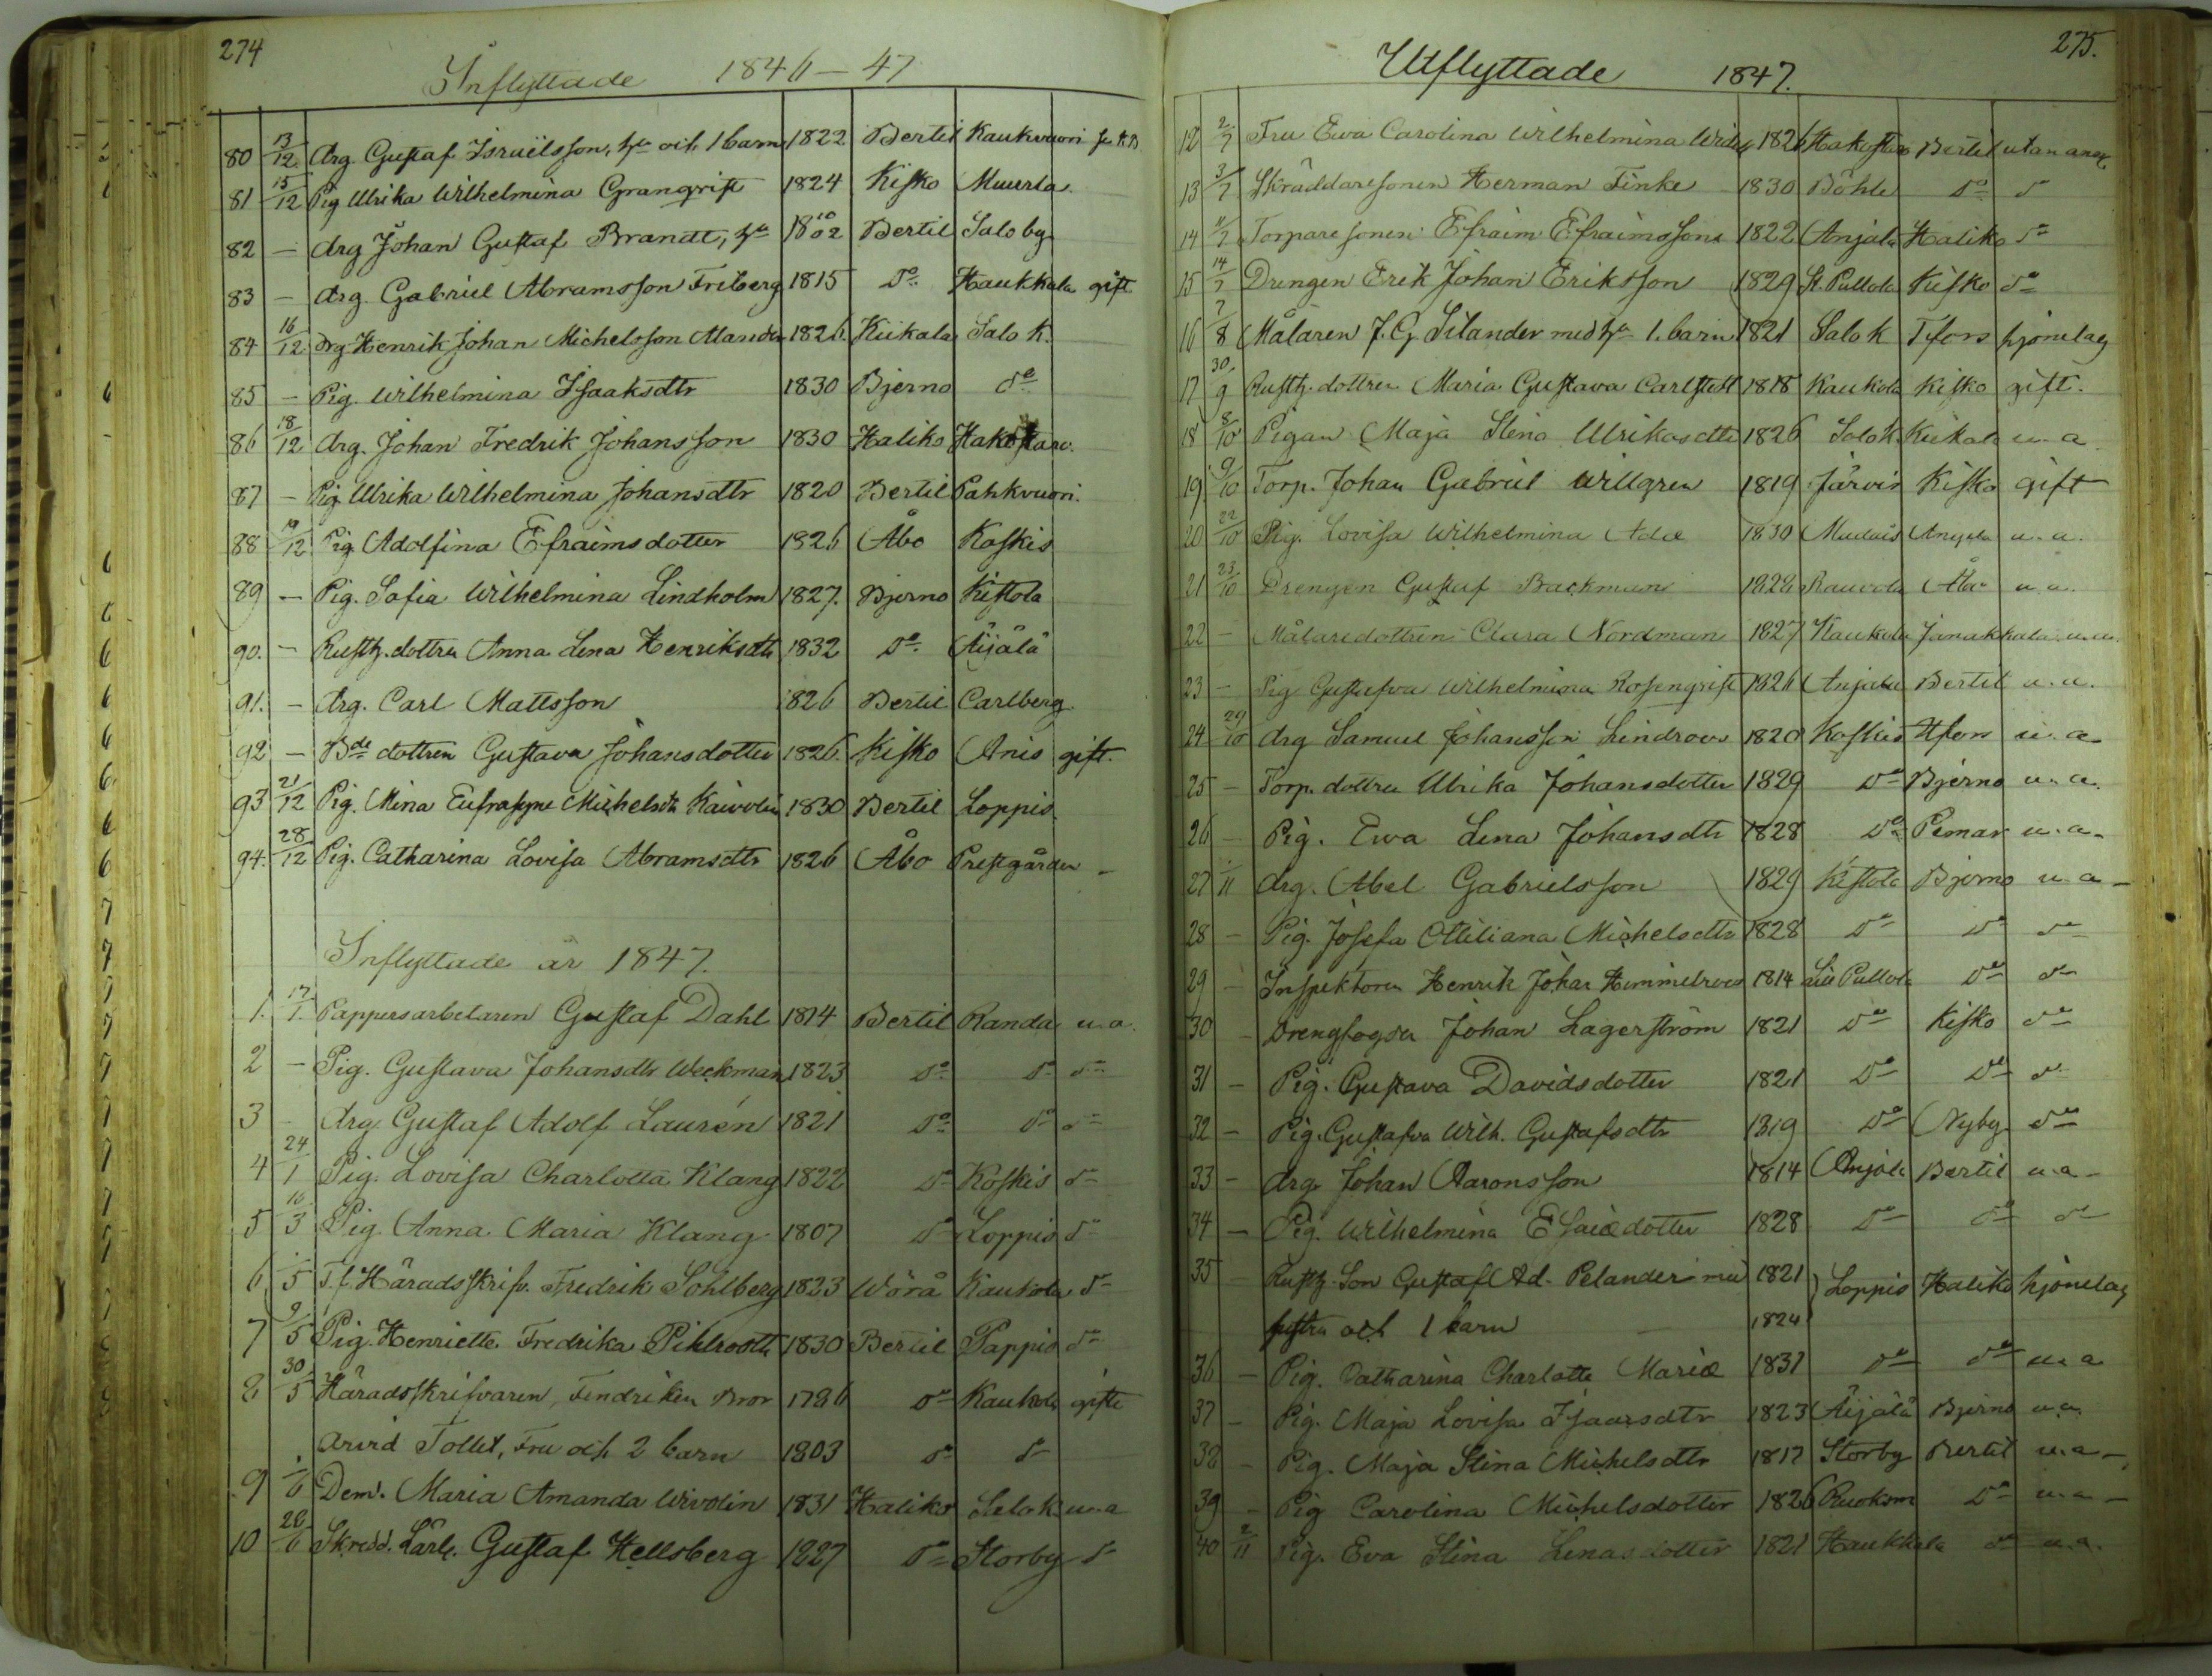 274
Inflyttade 1846-47
80 13/12 Drg. Gustaf Israëlsson, hu och 1 barn 1822 Bertil Kaukvuori
81 15/12 Pig Ulrika Wilhelmina Granqvist 1824 Kisko Muurla
82 - Drg Johan Gustaf Brandt, hu 1802 Bertil Salo by
83 - Drg. Gabriel Abramsson Friberg 1815 Do Haukkala gift
84 16/12 Drg Henrik Johan Michelsson Alander 1826 Kiikala Salo k.
85 - Pig. Wilhelmina Isaaksdtr 1830 Bjerno do
86 18/12 Drg. Johan Fredrik Johansson 1830 Haliko Hakostaro.
87 - Pig Ulrika Wilhelmina Johansdtr 1820 Bertil Pahkvuori.
88 19/12 Pig Adolfina Efraimsdotter 1826 Åbo Koskis
89 - Pig. Sofia Wilhelmina Lindholm 1827. Bjerno Kistola
90. - Rusth. dottren Anna Lena Henriksdtr 1832 Do Äijälä
91. - Drg. Carl Mattsson 1826 Bertil Carlberg
92 - Bde dottren Gustava Johansdotter 1826. Kisko Anis gift.
93 21/12 Pig. Mina Eufrosyne Michelsdtr 1830 Bertil Loppis
94. 28/12 Pig. Catharina Lovisa Abramsdtr 1826 Åbo Prestgården -
Inflyttade år 1847.
1. 17/1. Pappersarbetaren Gustaf Dahl 1814 Bertil Randa u.a.
2 - Pig. Gustava Johansdtr Weckman 1823 Do Do do
3 - Drg Gustaf Adolf Laurén 1821 Do Do do
4 24/1 Pig. Lovisa Charlotta Klang 1822 Do Koskis do
5 16/3 Pig Anna Maria Klang 1807 Do Loppis do
6 /5 T.f. Häradsskrifv. Fredrik Sohlberg 1823 Wörå Kaukola do
7 9/5 Pig. Henriette Fredrika 1830 Bertil Pappis do
8 30/5 Häradsskrifvaren, Bror 1786 Do Kaukola gifte
Arvid Tollet, Fru och 2 barn 1803 do do
9 1/6 Dem. Maria Amanda Wivolin 1831 Haliko Salo k u.a
10 28/6 Skredd. Lärl. Gustaf Hellsberg 1827 Do Storby do
275.
Utflyttade 1847.
12 2/7 Fru Ewa Carolina Wilhelmina 1826 Hakostaro Bertil utan anm
13 3/7 Skräddaresonen Herman Finke 1830 Böhle Do do
14 11/7 Torparesonen Efraim Efraimsson 1822 Anjala Haliko do
15 14/7 Drengen Erik Johan Eriksson 1829 St. Pullola Kisko do
16 7/8 Målaren J. G. Silander med hu 1. barn 1821 Salo k Tfors hjonelag
17 30/9 Rusth. dottren Maria Gustava Carlstedt 1818 Kaukola Kisko gift.
18 8/10 Pigan Maja Stina Ulrikasdtr 1826 Salo k. Kiikala u. a
19 9/10 Torp. Johan Gabriel Willgren 1819 Järvis Kisko gift
20 22/10 Pig. Lovisa Wilhelmina 1830 u. a.
21 23/10 Drengen Gustaf Backman 1828 Rauvola Åbo u. a.
22 - Målaredottren Clara Nordman 1827 Kaukola Janakkala u. a.
23 - Pig Gustafva Wilhelmina Rosenqvist 1826 Anjala Bertil u. a.
24 29/10 Drg Samuel Johansson Lindroos 1820 Koskis Hfors u. a.
25 - Torp. dottren Ulrika Johansdotter 1829 Do Bjerno u. a.
26 - Pig. Ewa Lena Johansdtr 1828 Do Pemar u. a.
27 1/11 Drg. Abel Gabrielsson 1829 Kistola Bjerno u. a -
28 - Pig. Josefa Ottiliana Michelsdtr 1828 Do Do do
29 - Inspektoren Henrik Johan Himmelroos 1814 Lill Pullola Do do
30 - Drengfogden Johan Lagerström 1821 Do Kisko do
31 - Pig. Gustava Davidsdotter 1821 Do Do do
32 - Pig. Gustafva Wilh. Gustafsdtr 1819 Do Nyby do
33 - Drg Johan Aaronsson 1814 Anjala Bertil u. a -
34 - Pig. Wilhelmina Esaiædotter 1828 Do Do do
35 - Rusth. Son Gustaf Ad. Pelander med 1821 Loppis Haliko hjonelag
hustru och 1 barn 1824
36 - Pig. Catharina Charlotta Mariæ 1831 Do Do u. a
37 - Pig. Maja Lovisa Isaacsdtr 1823 Äijälä Bjerno u. a.
38 - Pig. Maja Stina Michelsdtr 1817 Storby Bertil u. a -
39 - Pig Carolina Michelsdotter 1826 Do u. a -
40 2/11 Pig. Eva Stina Lenasdotter 1821 Haukkala do u. a.